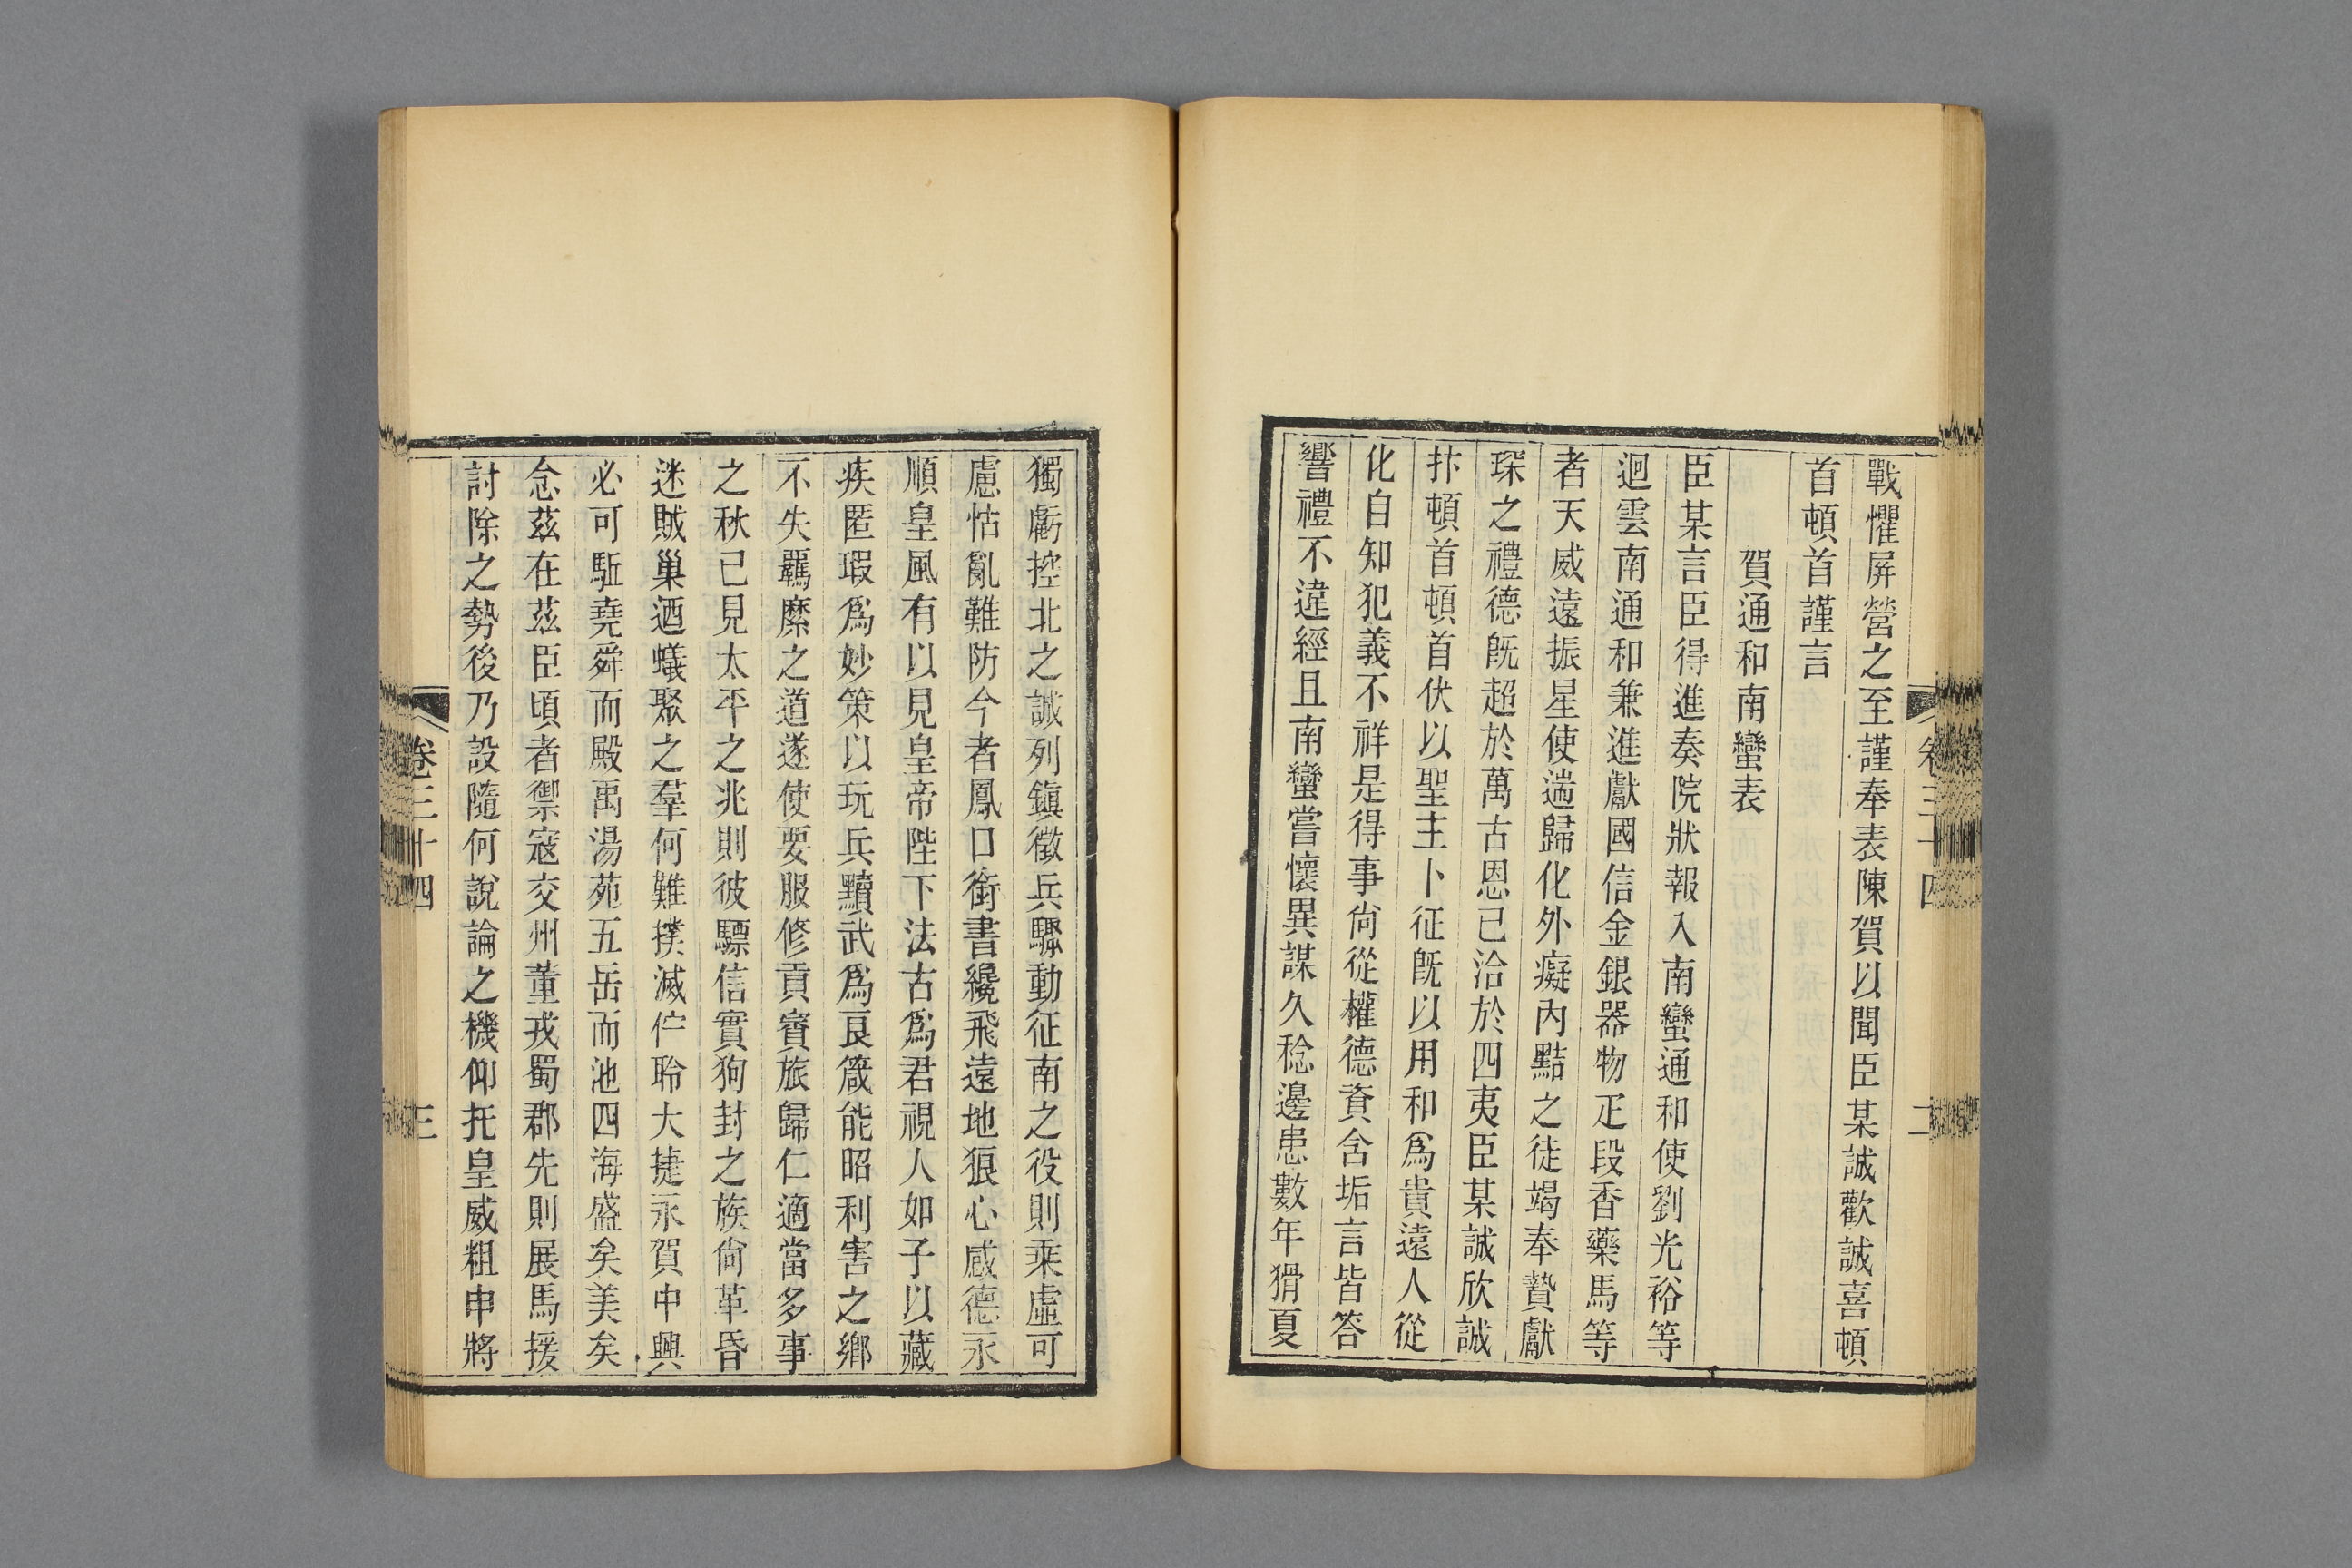 戰懼屏營之至謹奉表陳賀以聞臣某誠歡誠喜頓
首頓首謹言
賀通和南蠻表
臣某言臣得進奏院狀報入南蠻通和使劉光裕等
迥雲南通和兼進獻國信金銀器物疋段香藥馬等
者天威遠振星使遄歸化外癡內黠之徒竭奉贄獻
琛之禮德旣超於萬古恩已洽於四夷臣某誠欣誠
抃頓首頓首伏以聖主卜征旣以用和爲貴遠人從
化自知犯義不祥是得事尙從權德資含垢言皆答
響禮不違經且南蠻嘗懷異謀久稔邊患數年猾夏
卷三十四
二
獨虧控北之誠列鎭徵兵驟動征南之役則乘虛可
慮怙亂難防今者鳳口銜書纔飛遠地狼心感德永
順皇風有以見皇帝陛下法古爲君視人如子以藏
疾匿瑕爲妙策以玩兵黷武爲良箴能昭利害之鄉
不失羈縻之道遂使要服修貢賓旅歸仁適當多事
之秋已見太平之兆則彼驃信實狗封之族尙革昏
迷賊巢迺蟻聚之羣何難撲滅伫聆大捷永賀中興
必可駈堯舜而殿禹湯苑五岳而池四海盛矣美矣
念茲在茲臣頃者禦寇交州董戎蜀郡先則展馬援
討除之勢後乃設隨何說論之機仰托皇威粗申將
卷三十四
三